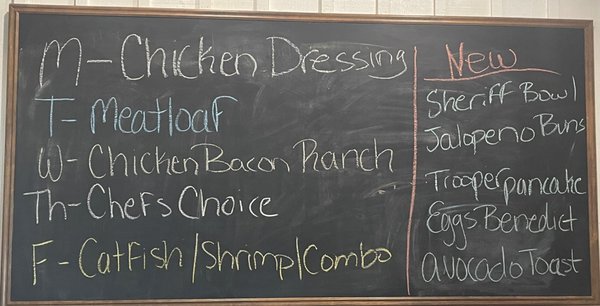 M - Chicken Dressing
T - Meatloaf
W - Chicken Bacon Ranch
Th - Chefs Choice
F - Catfish / Shrimp / Combo
New
Sheriff Bowl
Jalopeno Buns
Trooper pancake
Eggs Benedict
avocado Toast